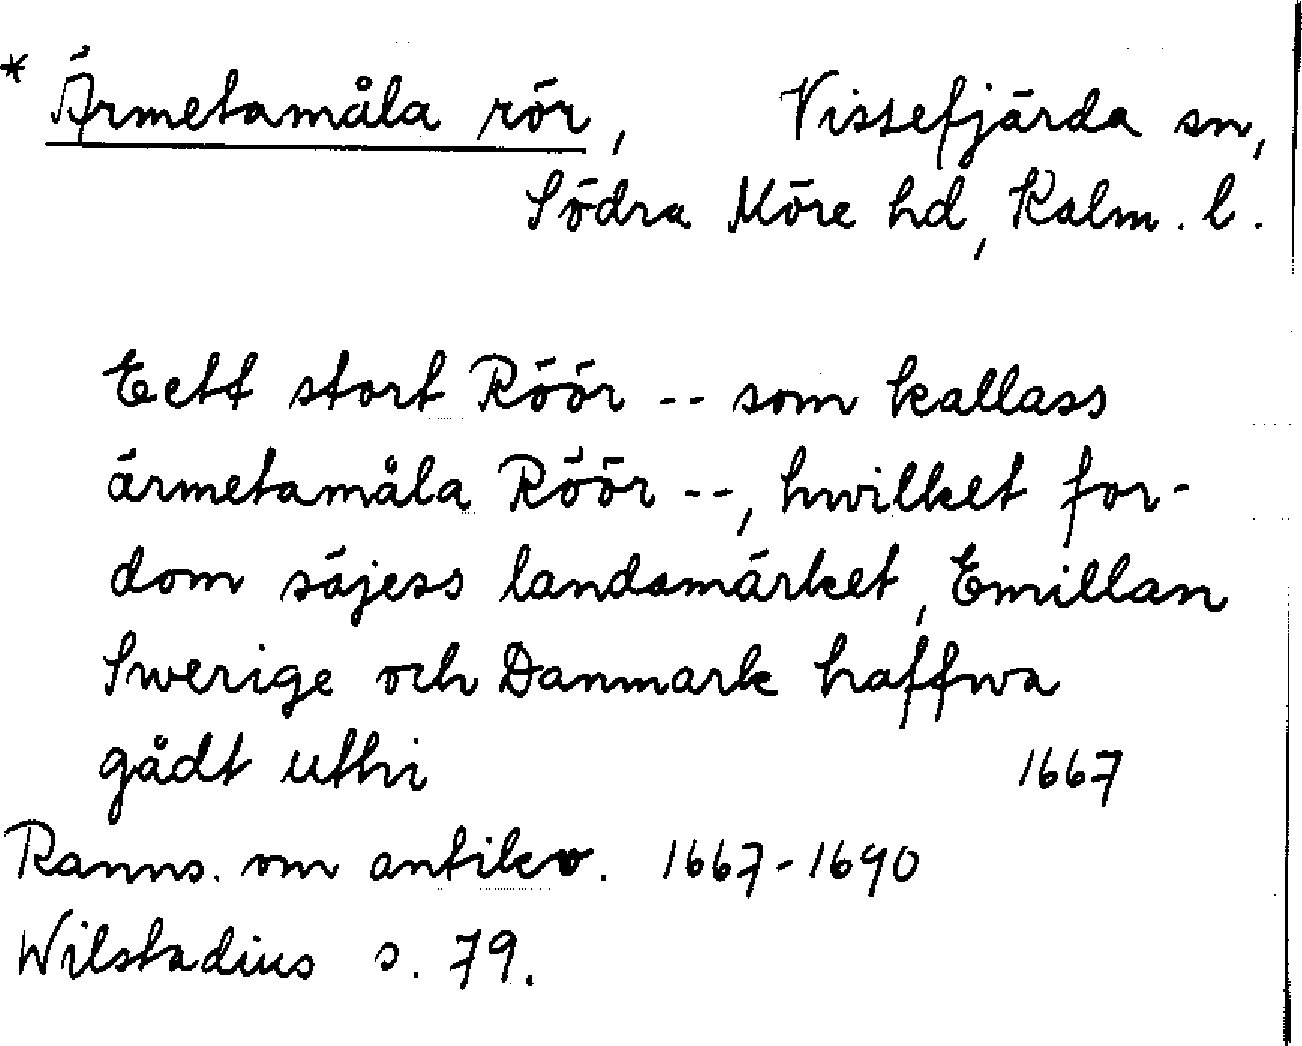 * Ärmetamåla rör, Vissefjärda sn,
Södra Möre hd, Kalm. l.
Eett stort Röör -- som kallass
ärmetamåla Röör --, hwilket for-
dom säjess landsmärket, Emillan
Swerige och Danmark haffwa
gådt uthi 1667
Ranns. om antikv. 1667-1690
Wilstadius s. 79.